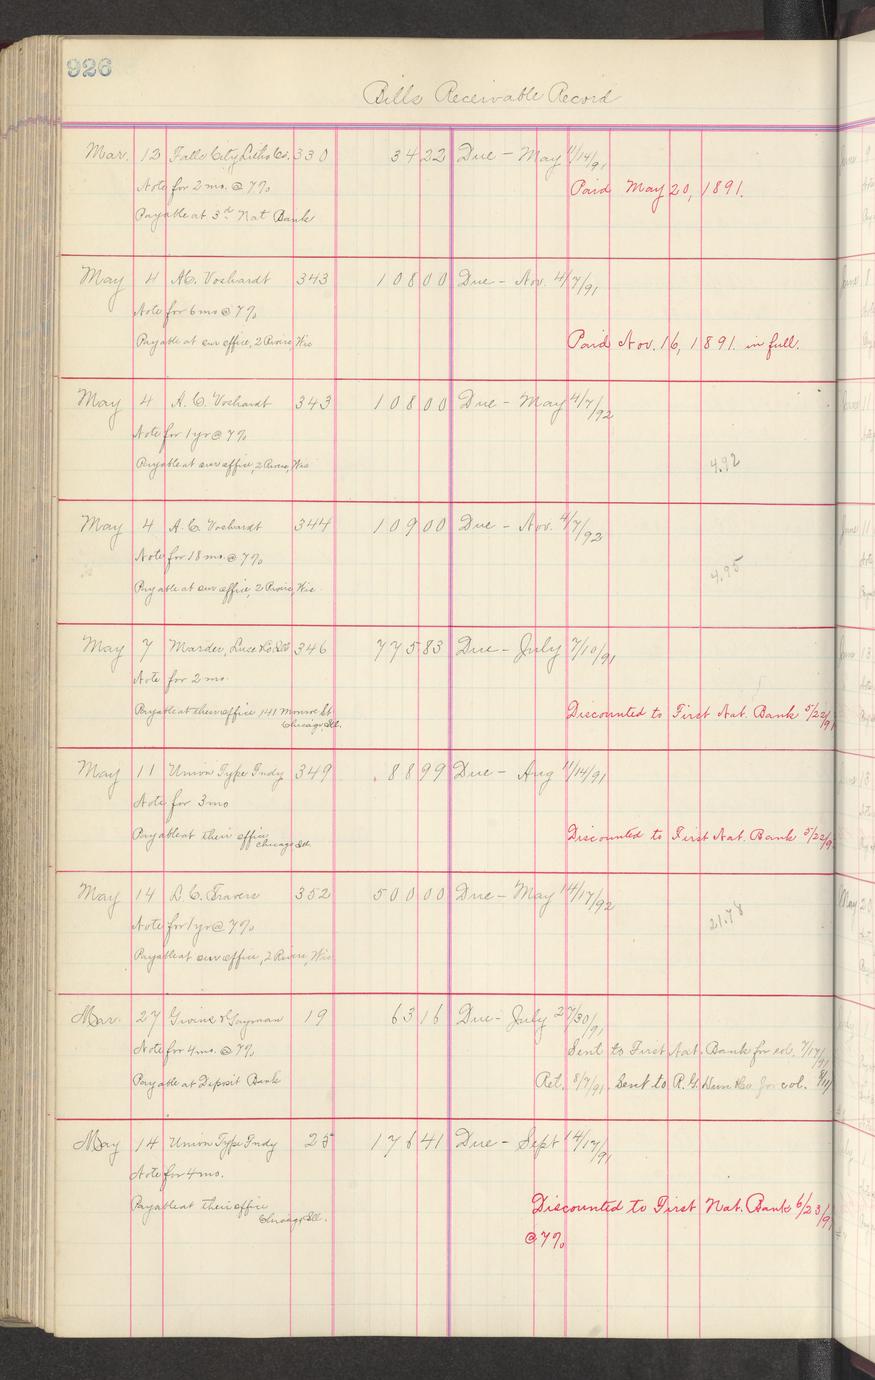 926
Bills Receivable Record
Mar. 12 Falls City Litho Co. 330 34 22 Due - May 11/14/91
Note for 2 mo. @ 7%
Paid May 20, 1891.
Payable at 3rd Nat Bank
May 4 A.C. Voshardt 343 108 00 Due - Nov. 4/7/91
Note for 6 mo @ 7%
Payable at our office, 2 Rivers, Wis
Paid Nov. 16, 1891. in full.
May 4 A. C. Voshardt 343 108 00 Due - May 4/7/92
Note for 1 yr @ 7%
Payable at our office, 2 Rivers, Wis
4.92
May 4 A. C. Voshardt 344 109 00 Due - Nov. 4/7/92
Note for 18 mo. @ 7%
Payable at our office, 2 Rivers, Wis
4.95
May 7 Marder, Luse & Co 346 775 83 Due - July 7/10/91
Note for 2 mo.
Payable at their office 141 Monroe St
Chicago, Ill.
Discounted to First Nat. Bank 5/22/91
May 11 Union Type Fndy 349 88 99 Due - Aug 11/14/91
Note for 3 mo
Payable at their office
Chicago Ill.
Discounted to First Nat. Bank 5/22/9
May 14 D. C. Travers 352 500 00 Due - May 14/17/92
Note for 1 yr @ 7%
21.78
Payable at our office, 2 Rivers, Wis
Mar. 27 & Gayman 19 63 16 Due - July 27/30/91
Note for 4 mo. @ 7%
Sent to First Nat. Bank for col. 7/17/91
Payable at Deposit Bank
Ret. 8/7/91. Sent to R. G. Dun & Co for col. 8/11
May 14 Union Type Fndy 25 176 41 Due - Sept 14/17/91
Note for 4 mo.
Payable at their office
Chicago Ill.
Discounted to First Nat. Bank 6/23/91
@ 7%